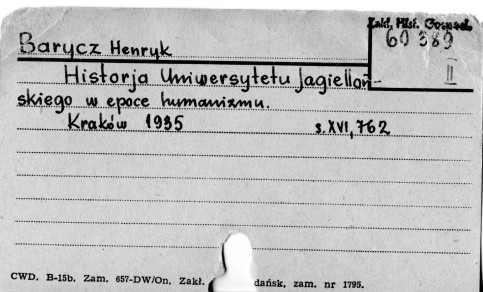 Zakł. Hist. Gospod.
60389
II
Barycz Henryk
Historja Uniwersytetu Jagielloń-
skiego w epoce humanizmu.
Kraków 1935 s.XVI,762
CWD. B-15b. Zam. 657-DW/On. Zakł. dańsk, zam. nr 1795.